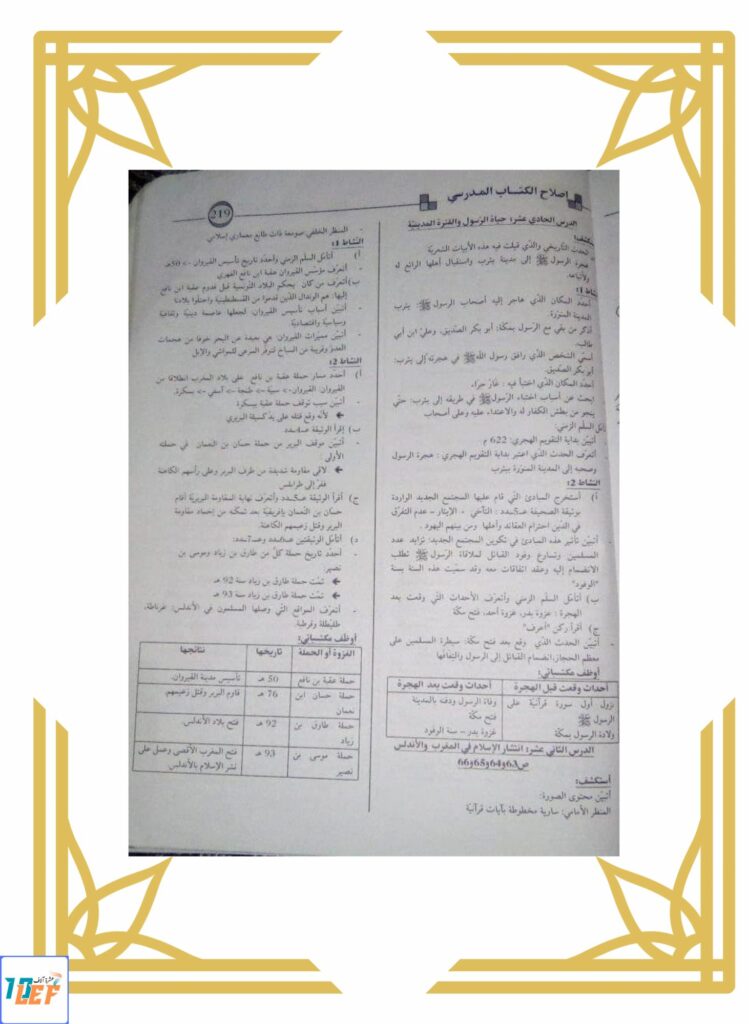 إصلاح الكتاب المدرسي
219
الدرس الحادي عشر: حياة الرسول والفترة المدينيّة
الحدث التّاريخي والذي قيلت فيه هذه الأبيات الشعريّة
هجرة الرسول ﷺ إلى مدينة يثرب واستقبال أهلها الرائع له
ولأتباعه.
أحدّد المكان الذي هاجر إليه أصحاب الرسول ﷺ: يثرب
المدينة المنوّرة.
أذكر من بقي مع الرّسول بمكّة: أبو بكر الصدّيق، وعليّ ابن أبي
طالب.
أسمّي الشخص الذي رافق رسول الله ﷺ في هجرته إلى يثرب:
أبو بكر الصدّيق.
أحدّد المكان الذي اختبأ فيه : غار حراء.
ابحث عن أسباب اختباء الرّسول ﷺ في طريقه إلى يثرب: حتّى
ينجو من بطش الكفار له والاعتداء عليه وعلى أصحاب
السلّم الزّمني:
أتبيّن بداية التقويم الهجري: 622 م.
أتعرّف الحدث الذي اعتبر بداية التقويم الهجري : هجرة الرسول
وصحبه إلى المدينة المنوّرة بيثرب
النشاط 2:
أ) أستخرج المبادئ التّي قام عليها المجتمع الجديد الواردة
بوثيقة الصحيفة عـ5ـدد : التآخي - الإيثار - عدم التفرّق
في الدّين احترام العقائد وأهلها ومن بينهم اليهود .
- أتبيّن تأثير هذه المبادئ في تكوين المجتمع الجديد: تزايد عدد
المسلمين وتسارع وفود القبائل لملاقاة الرّسول ﷺ تطلب
الانضمام إليه وعقد اتفاقات معه وقد سمّيت هذه السنة بسنة
"الوفود"
ب) أتأمّل السلّم الزمني وأتعرّف الأحداث التّي وقعت بعد
الهجرة : غزوة بدر، غزوة أحد، فتح مكّة.
ج) أقرأ ركن "أعرف"
- أتبيّن الحدث الذي وقع بعد فتح مكّة: سيطرة المسلمين على
معظم الحجاز.انضمام القبائل إلى الرسول والتفافها
أوظف مكتسباتي:
أحداث وقعت قبل الهجرة | أحداث وقعت بعد الهجرة
نزول أول سورة قرآنيّة على الرسول ﷺ | وفاة الرسول ودفنه بالمدينة
ولادة الرسول بمكّة | فتح مكّة
غزوة بدر - سنة الوفود
الدرس الثاني عشر: انتشار الإسلام في المغرب والأندلس
ص63و64و65و66
أستكشف:
أتبيّن محتوى الصورة:
المنظر الأمامي: سارية مخطوطة بآيات قرآنيّة
- المنظر الخلفي صومعة ذات طابع معماري إسلامي
النّشاط 1:
أ) أتأمّل السلّم الزمني وأحدّد تاريخ تأسيس القيروان -> 50هـ
- أتعرف مؤسّس القيروان عقبة ابن نافع الفهري
ب) أتعرف من كان يحكم البلاد التونسية قبل قدوم عقبة ابن نافع
إليها: هم الوندال الذين قدموا من القسطنطينية واحتلّوا بلادنا
- أتبيّن أسباب تأسيس القيروان: لجعلها عاصمة دينيّة وثقافية
وسياسيّة واقتصاديّة
- أتبيّن مميّزات القيروان: هي بعيدة عن البحر خوفا من هجمات
العدوّ وقريبة من السباخ لتوفّر المرعى للمواشي والإبل
النشاط 2:
أ) أحدّد مسار حملة عقبة بن نافع على بلاد المغرب انطلاقا من
القيروان: القيروان-> سبتة-> طنجة-> آسفي -> بسكرة.
- أتبيّن سبب توقّف حملة عقبة ببسكرة
← لأنّه وقع قتله على يد كسيلة البربري
ب) إقرأ الوثيقة عـ4ـدد
- أتبيّن موقف البربر من حملة حسان بن النعمان في حملته
الأولى
← لاقى مقاومة شديدة من طرف البربر وعلى رأسهم الكاهنة
ففرّ إلى طرابلس
ج) أقرأ الوثيقة عـ5ـدد وأتعرّف نهاية المقاومة البربريّة أقام
حسان بن النّعمان بإفريقيّة بعد تمكّنه من إخماد مقاومة
البربر وقتل زعيمهم الكاهنة.
د) أتأمّل الوثيقتين عـ6ـدد وعـ7ـدد:
- أحدّد تاريخ حملة كلّ من طارق بن زياد وموسى بن
نصير:
← تمّت حملة طارق بن زياد سنة 92 هـ
← تمّت حملة طارق بن زياد سنة 93 هـ
- أتعرّف المواقع التّي وصلها المسلمون في الأندلس: غرناطة،
طليطلة وقرطبة.
أوظف مكتسباتي:
الغزوة أو الحملة | تاريخها | نتائجها
حملة عقبة بن نافع | 50 هـ | تأسيس مدينة القيروان.
حملة حسان ابن نعمان | 76 هـ | قاوم البربر وقتل زعيمهم.
حملة طارق بن زياد | 92 هـ | فتح بلاد الأندلس.
حملة موسى بن نصير | 93 هـ | فتح المغرب الأقصى وعمل على نشر الإسلام بالأندلس.